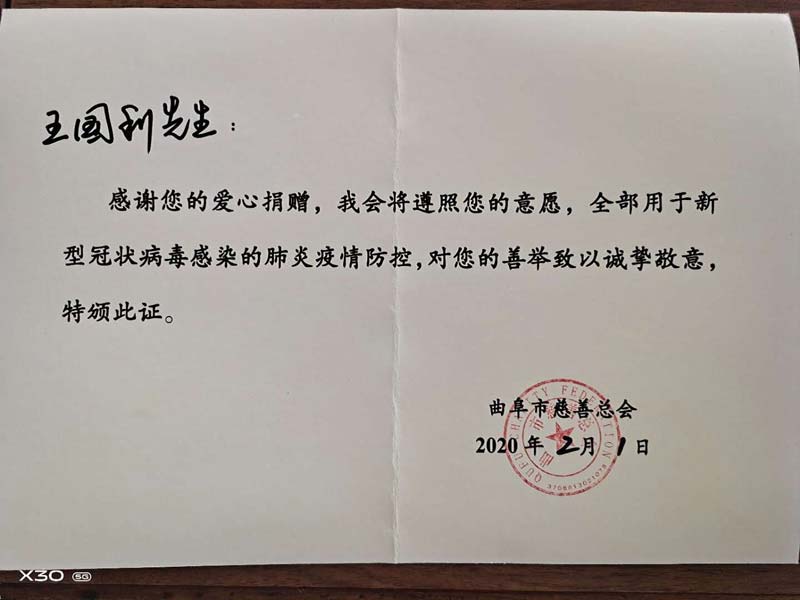 王国利先生：
感谢您的爱心捐赠，我会将遵照您的意愿，全部用于新
型冠状病毒感染的肺炎疫情防控，对您的善举致以诚挚敬意，
特颁此证。
曲阜市慈善总会
2020 年 2 月 1 日
QUFU CHARITY FEDERATION
X30 5G